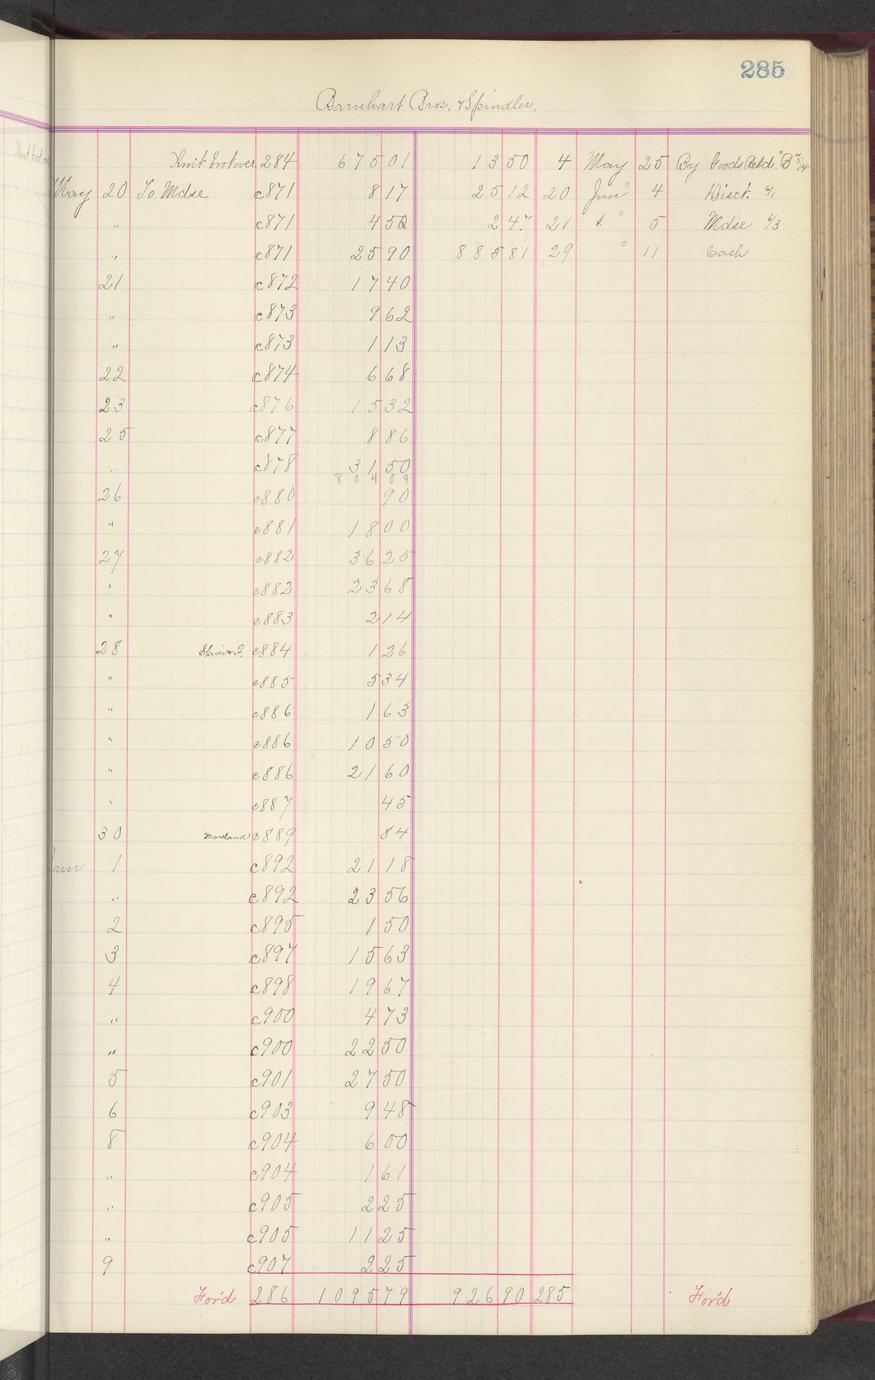 285
Barnhart Bros. & Spindler.
Amt brot over 284 675 01 13 50 4 May 25 By Goods Retd. "B"
May 20 To Mdse c871 8 17 25 12 20 June 4 Disct. 4/1
" c871 4 52 2 47 21 " 5 Mdse 4/3
" c871 25 90 885 81 29 " 11 Cash
21 c872 17 40
" c873 9 62
" c873 1 13
22 c874 6 68
23 c876 15 32
25 c877 8 86
" c878 31 50
804 09
26 c880 90
" c881 18 00
27 c882 36 25
" c882 23 68
" c883 2 14
28 c884 1 26
" c885 5 34
" c886 1 63
" c886 10 50
" c886 21 60
" c887 45
30 Moreland c889 84
June 1 c892 21 18
" c892 23 56
2 c895 1 50
3 c897 15 63
4 c898 19 67
" c900 4 73
" c900 22 50
5 c901 27 50
6 c903 9 48
8 c904 6 00
" c904 1 61
" c905 2 25
" c905 11 25
9 c907 2 25
For'd 286 1095 79 926 90 285 For'd